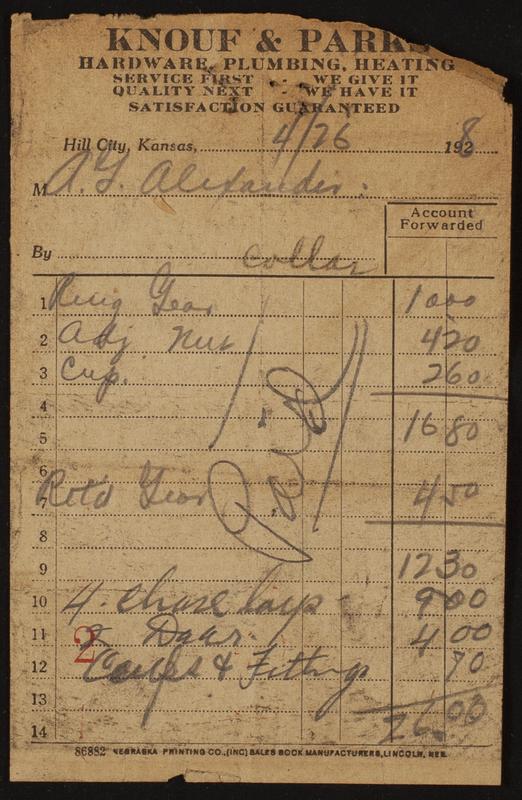 KNOUF & PARKS
HARDWARE, PLUMBING, HEATING
SERVICE FIRST - WE GIVE IT
QUALITY NEXT - WE HAVE IT
SATISFACTION GUARANTEED
Hill City, Kansas, 4/26 1928
M A. G. Alexander.
Account Forwarded
By collar
1 Ring Gear 10 00
2 Adj Nut 4 20
3 Cup. 2 60
4 16 80
5
6
7 Ret'd Gear 4 50
8
9 12 30
10 4. 9 00
11 2 4 00
12 & Fittings 70
13
14 26.00
Paid
2
86882 NEBRASKA PRINTING CO., (INC) SALES BOOK MANUFACTURERS, LINCOLN, NEB.